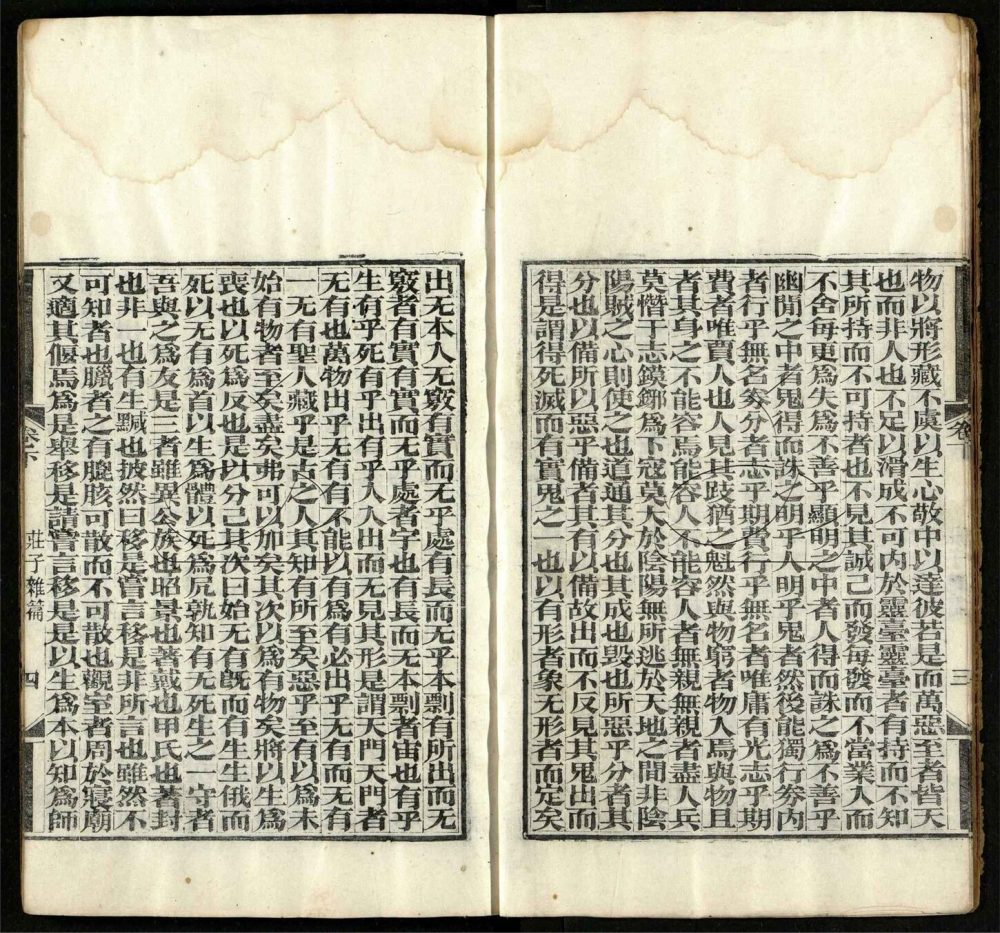 物以將形藏不虞以生心敬中以達彼若是而萬惡至者皆天
也而非人也不足以滑成不可內於靈臺靈臺者有持而不知
其所持而不可持者也不見其誠己而發每發而不當業人而
不舍每更爲失爲不善乎顯明之中者人得而誅之爲不善乎
幽閒之中者鬼得而誅之明乎人明乎鬼者然後能獨行券內
者行乎無名券分者志乎期費行乎無名者唯庸有光志乎期
費者唯賈人也人見其跂猶之魁然與物窮者物入焉與物且
者其身之不能容焉能容人不能容人者無親無親者盡人兵
莫憯于志鏌鋣爲下寇莫大於陰陽無所逃於天地之間非陰
陽賊之心則使之也道通其分也其成也毀也所惡乎分者其
分也以備所以惡乎備者其有以備故出而不反見其鬼出而
得是謂得死滅而有實鬼之一也以有形者象无形者而定矣
三
出无本入无竅有實而无乎處有長而无乎本剽有所出而无
竅者有實有實而无乎處者宇也有長而无本剽者宙也有乎
生有乎死有乎出有乎入入出而无見其形是謂天門天門者
无有也萬物出乎无有有不能以有爲有必出乎无有而无有
一无有聖人藏乎是古之人其知有所至矣惡乎至有以爲未
始有物者至矣盡矣弗可以加矣其次以爲有物矣將以生爲
喪也以死爲反也是以分已其次曰始无有旣而有生生俄而
死以无有爲首以生爲體以死爲尻孰知有无死生之一守者
吾與之爲友是三者雖異公族也昭景也著戴也甲氏也著封
也非一也有生黬也披然曰移是嘗言移是非所言也雖然不
可知者也臘者之有膍胲可散而不可散也觀室者周於寢廟
又適其偃焉爲是舉移是請嘗言移是是以生爲本以知爲師
卷下 莊子雜篇 四